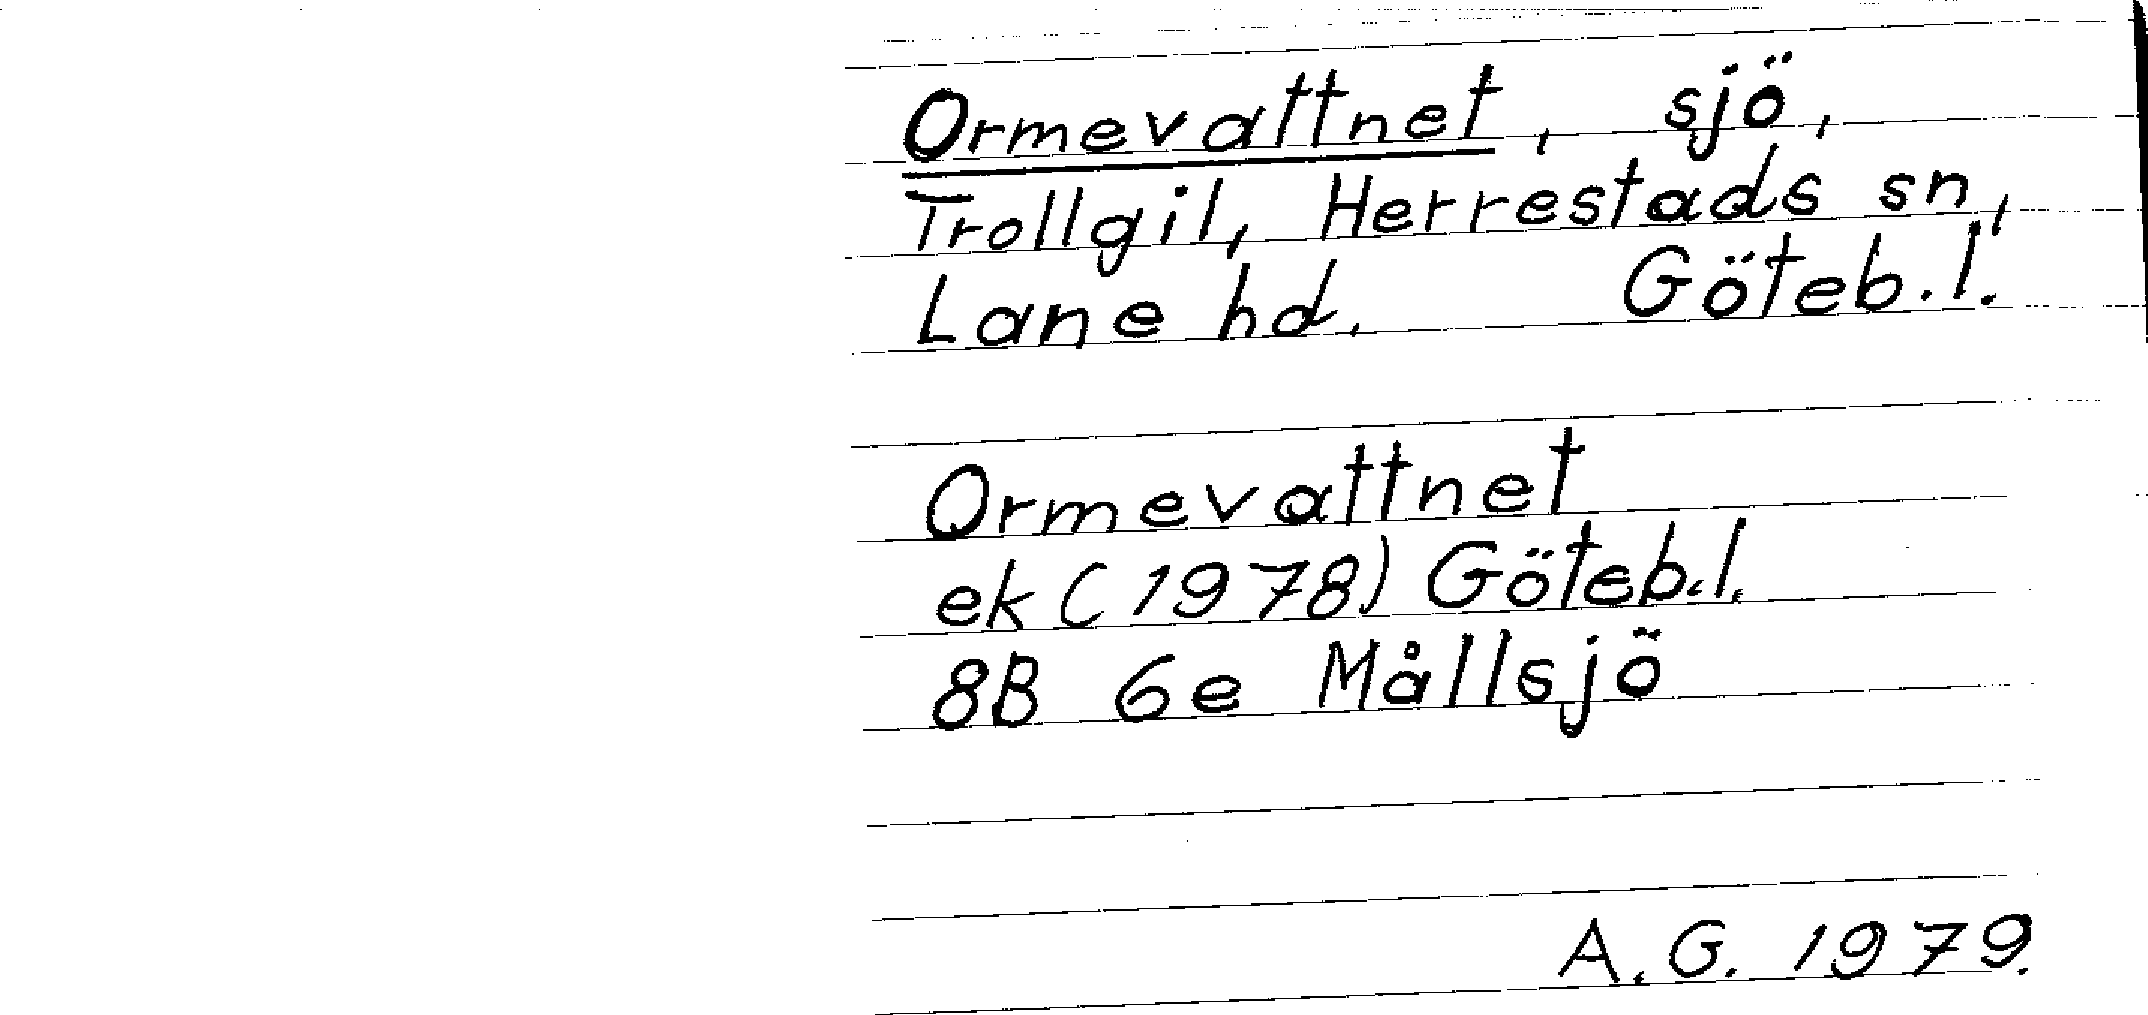 Ormevattnet, sjö,
Trollgil, Herrestads sn,
Lane hd. Göteb.l.
Ormevattnet
ek (1978) Göteb.l.
8B 6e Mållsjö
A.G. 1979.